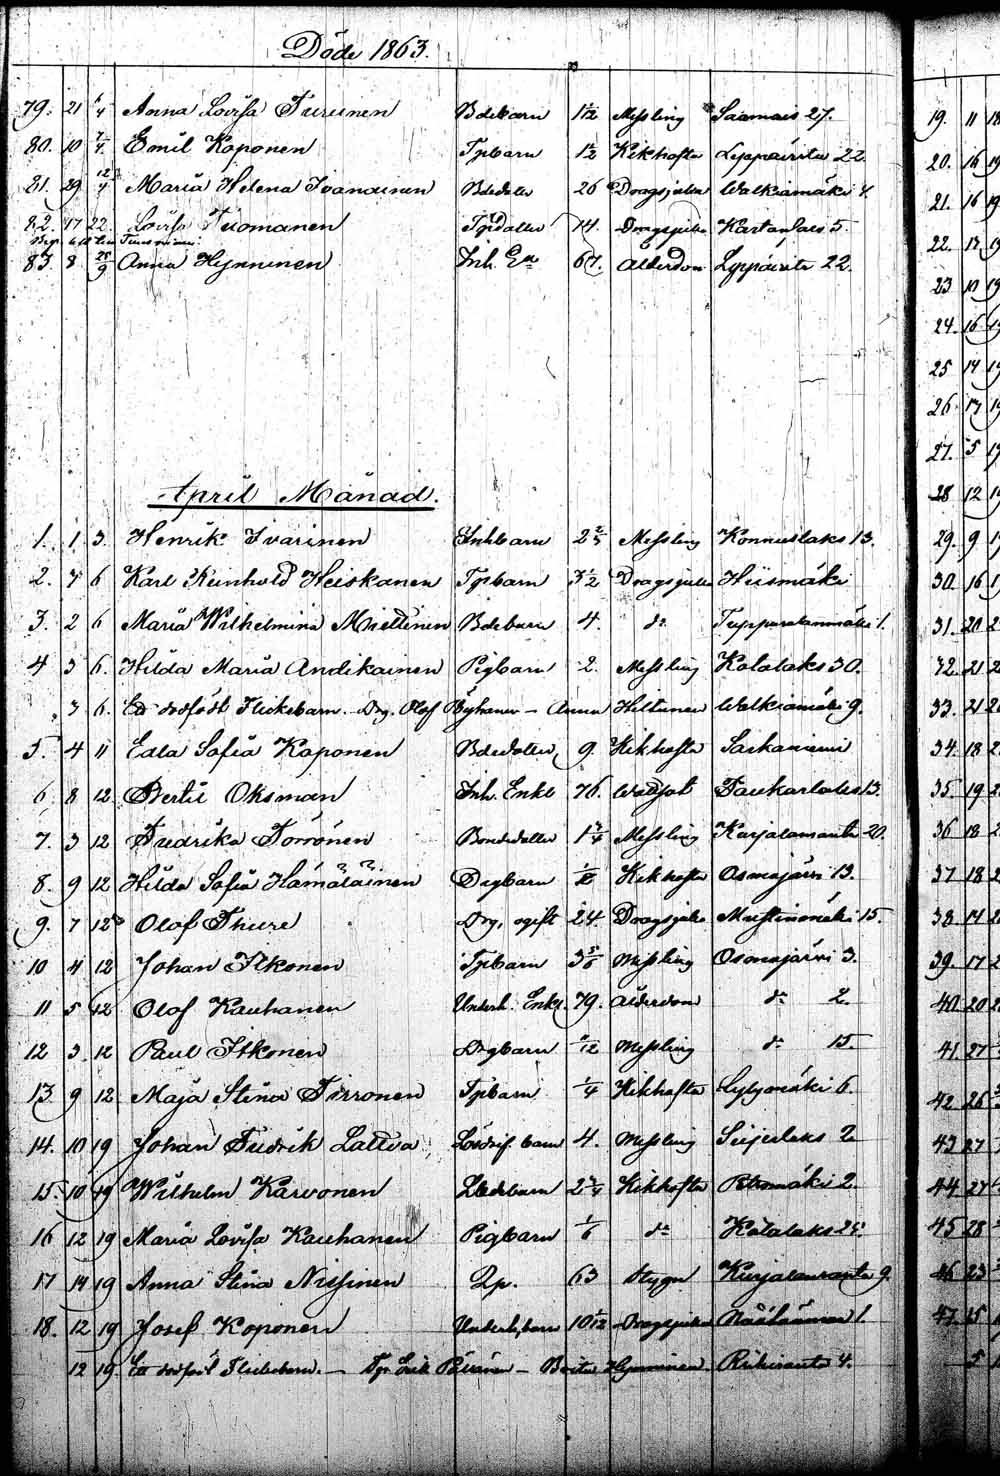 Döde 1863.
79. 21 6/4 Anna Lovisa Turunen Bdebarn 1 1/12 Messling Saamais 27.
80. 10 7/4 Emil Koponen Tjpbarn 1 1/2 Kikhosta Leppävirta 22.
81. 29 12/4 Maria Helena Ivanainen Bdedotter 26 Dragsjukan Walkiamäki 4.
82. 17 22. Lovisa Tuomanen Tjpdotter 14. Dragsjukan Kartanlaks 5.
83 8 25/9 Anna Hynninen Inh. Ea 67. Ålderdom Leppävirta 22.
April Månad.
1. 1 3. Henrik Ivarinen Inhbarn 2 2/3 Messling Konnuslaks 13.
2. 4 6 Karl Reinhold Heiskanen Tjpbarn 3 1/2 Dragsjukan Hiismäki
3. 2 6 Maria Wilhelmina Miettinen Bdebarn 4. do 1.
4 3 6. Hilda Maria Andikainen Pigbarn 2. Messling Kotalaks 30.
3 6. Ett dödfödt Flickebarn. Drg. Olof Anna Hiltunen Walkiamäki 9.
5. 4 11 Edla Sofia Koponen Bdedotter 9. Kikhosta Sarkaniemi
6 8 12 Bertil Oksman Inh. Enkl 76. Wådsot 13.
7. 3 12 Fredrika Torrönen Bondedotter 1 3/4 Messling Kurjalanranta 20.
8. 9 12 Hilda Sofia Hämäläinen Drgbarn Kikhosta Osmajärvi 13.
9. 7 12 Olof Thure Drg. ogift 24. Dragsjukan Mustinmäki 15.
10 4 12 Johan Itkonen Tjpbarn 3 5/6 Messling Osmajärvi 3.
11 5 12 Olof Kauhanen Underh. Enkl. 79. Ålderdom do 2.
12 3. 12 Paul Itkonen Drgbarn Messling do 15.
13 9 12 Maja Stina Tirronen Tjpbarn 1/4 Kikhosta Lylymäki 6.
14. 10 19 Johan Fredrik Lattva barn 4. Messling Seijeslaks 2
15 10 19 Wilhelm Karvonen Bdebarn 2 3/4 Kikhosta Petromäki 2.
16 12 19 Maria Lovisa Kauhanen Pigbarn 1/6 do Kotalaks 25.
17 14 19 Anna Stina Nissinen 63 Stygn Kurjalanranta 9.
18. 12 19 Josef Koponen Underh. barn 10 1/12 Dragsjukan 1.
12 19. Ett dödfödt Flickebarn. Tjp. Erik Beata Hynninen 4.
19. 11
20. 16
21. 16
22.
23 10
24. 16
25 14
26. 17
27. 5
28 12
29. 9
30. 16
31. 20
32. 21
33. 21
34. 18
35. 19
36 18
37 18
38. 14
39. 17
40. 20
41. 27
42. 26
43 27
44. 27
45 28
46 23
47. 15
5